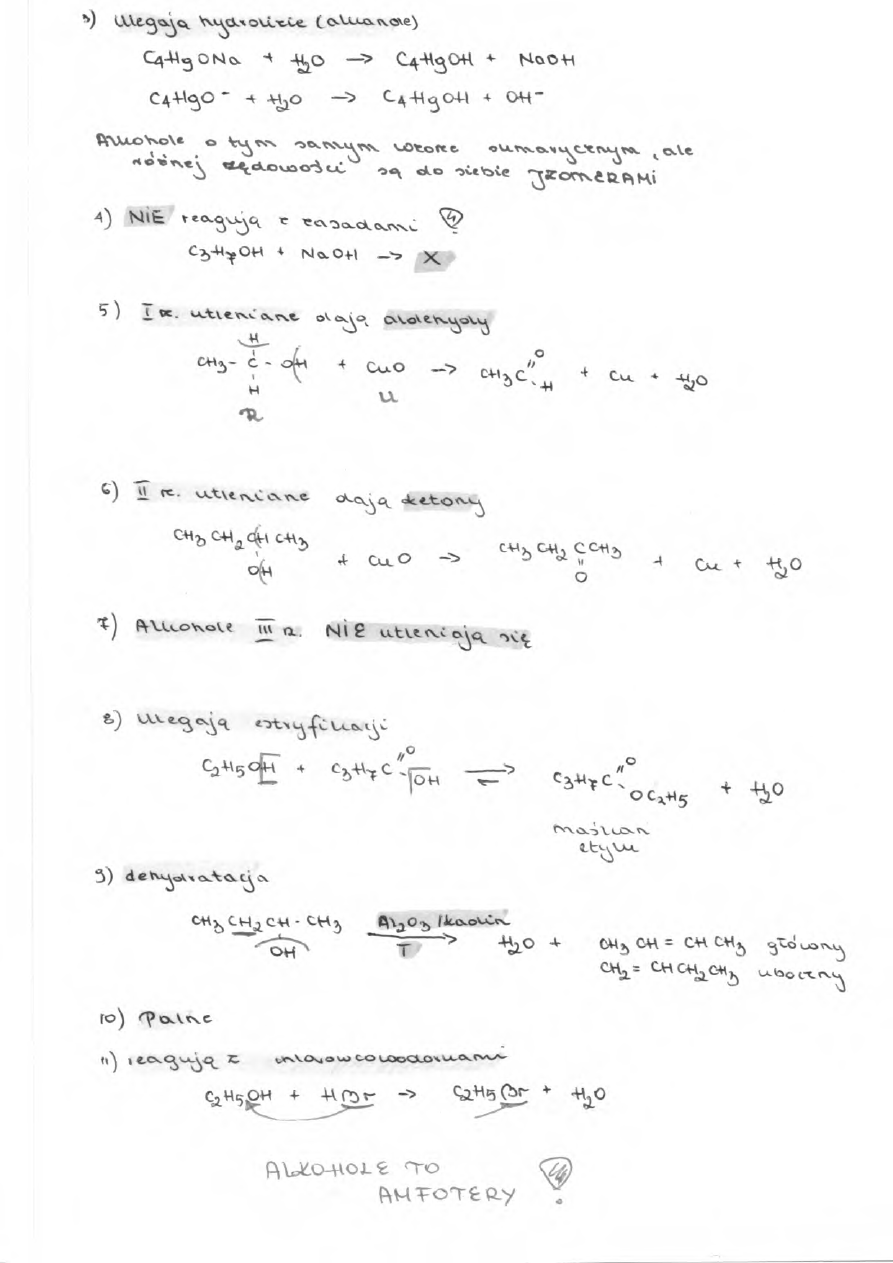 3) Ulegają hydrolizie (alkanole)
C₄H₉ONa + H₂O → C₄H₉OH + NaOH
C₄H₉O⁻ + H₂O → C₄H₉OH + OH⁻
Alkohole o tym samym wzorze sumarycznym, ale
różnej rzędowości są do siebie IZOMERAMI
4) NIE reagują z zasadami !
C₃H₇OH + NaOH → X
5) I rz. utleniane dają aldehydy
H
CH₃ - C - OH + CuO → CH₃C=O-H + Cu + H₂O
H
R U
6) II rz. utleniane dają ketony
CH₃CH₂CHCH₃ + CuO → CH₃CH₂CCH₃ + Cu + H₂O
OH O
7) Alkohole III rz. NIE utleniają się
8) Ulegają estryfikacji
C₂H₅OH + C₃H₇C=O-OH ⇌ C₃H₇C=O-OC₂H₅ + H₂O
maślan
etylu
9) dehydratacja
CH₃CH₂CH-CH₃ Al₂O₃/kaolin → H₂O + CH₃CH=CHCH₃ główny
OH T CH₂=CHCH₂CH₃ uboczny
10) Palne
11) reagują z chlorowcowodorkami
C₂H₅OH + HBr → C₂H₅Br + H₂O
ALKOHOLE TO !
AMFOTERY